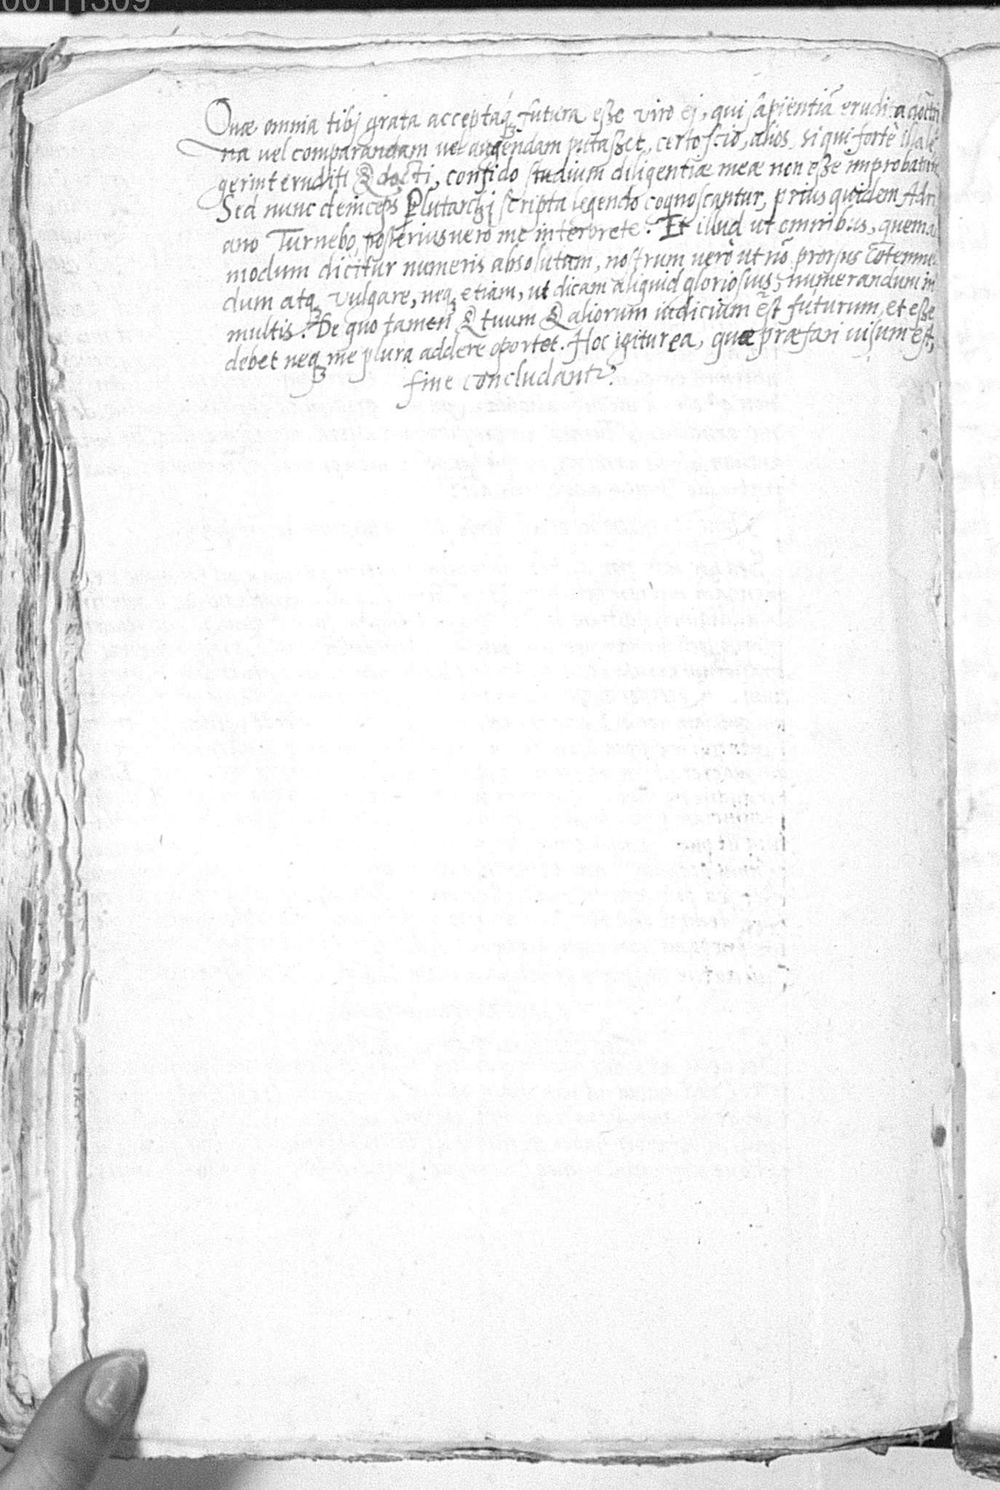 00111309
Quæ omnia tibj grata acceptaq́ȝ futura eße viro ej, qui sapientiã erudita doctri
na vel comparandam vel augendam putaßet, certo scio, alios, si qui forte illa le
gerint eruditi & docti, confido studium diligentiæ meæ non eße improbaturos
Sed nunc deinceps Plutarchi scripta legendo cognoscantur, prius quidem Adri
ano Turnebo, posterius vero me interprete. Et illud ut omnibus, quemad
modum dicitur numeris absolutam, nostrum verò ut nõ prorsus cõtemnen
dum atqȝ vulgare, neqȝ etiam, ut dicam aliquid gloriosius, numerandum in
multis. De quo tamen & tuum & aliorum iudicium est futurum, et eße
debet neqȝ me plura addere oportet. Hoc igitur ea, quæ præfari visum est,
fine concludantr̃.